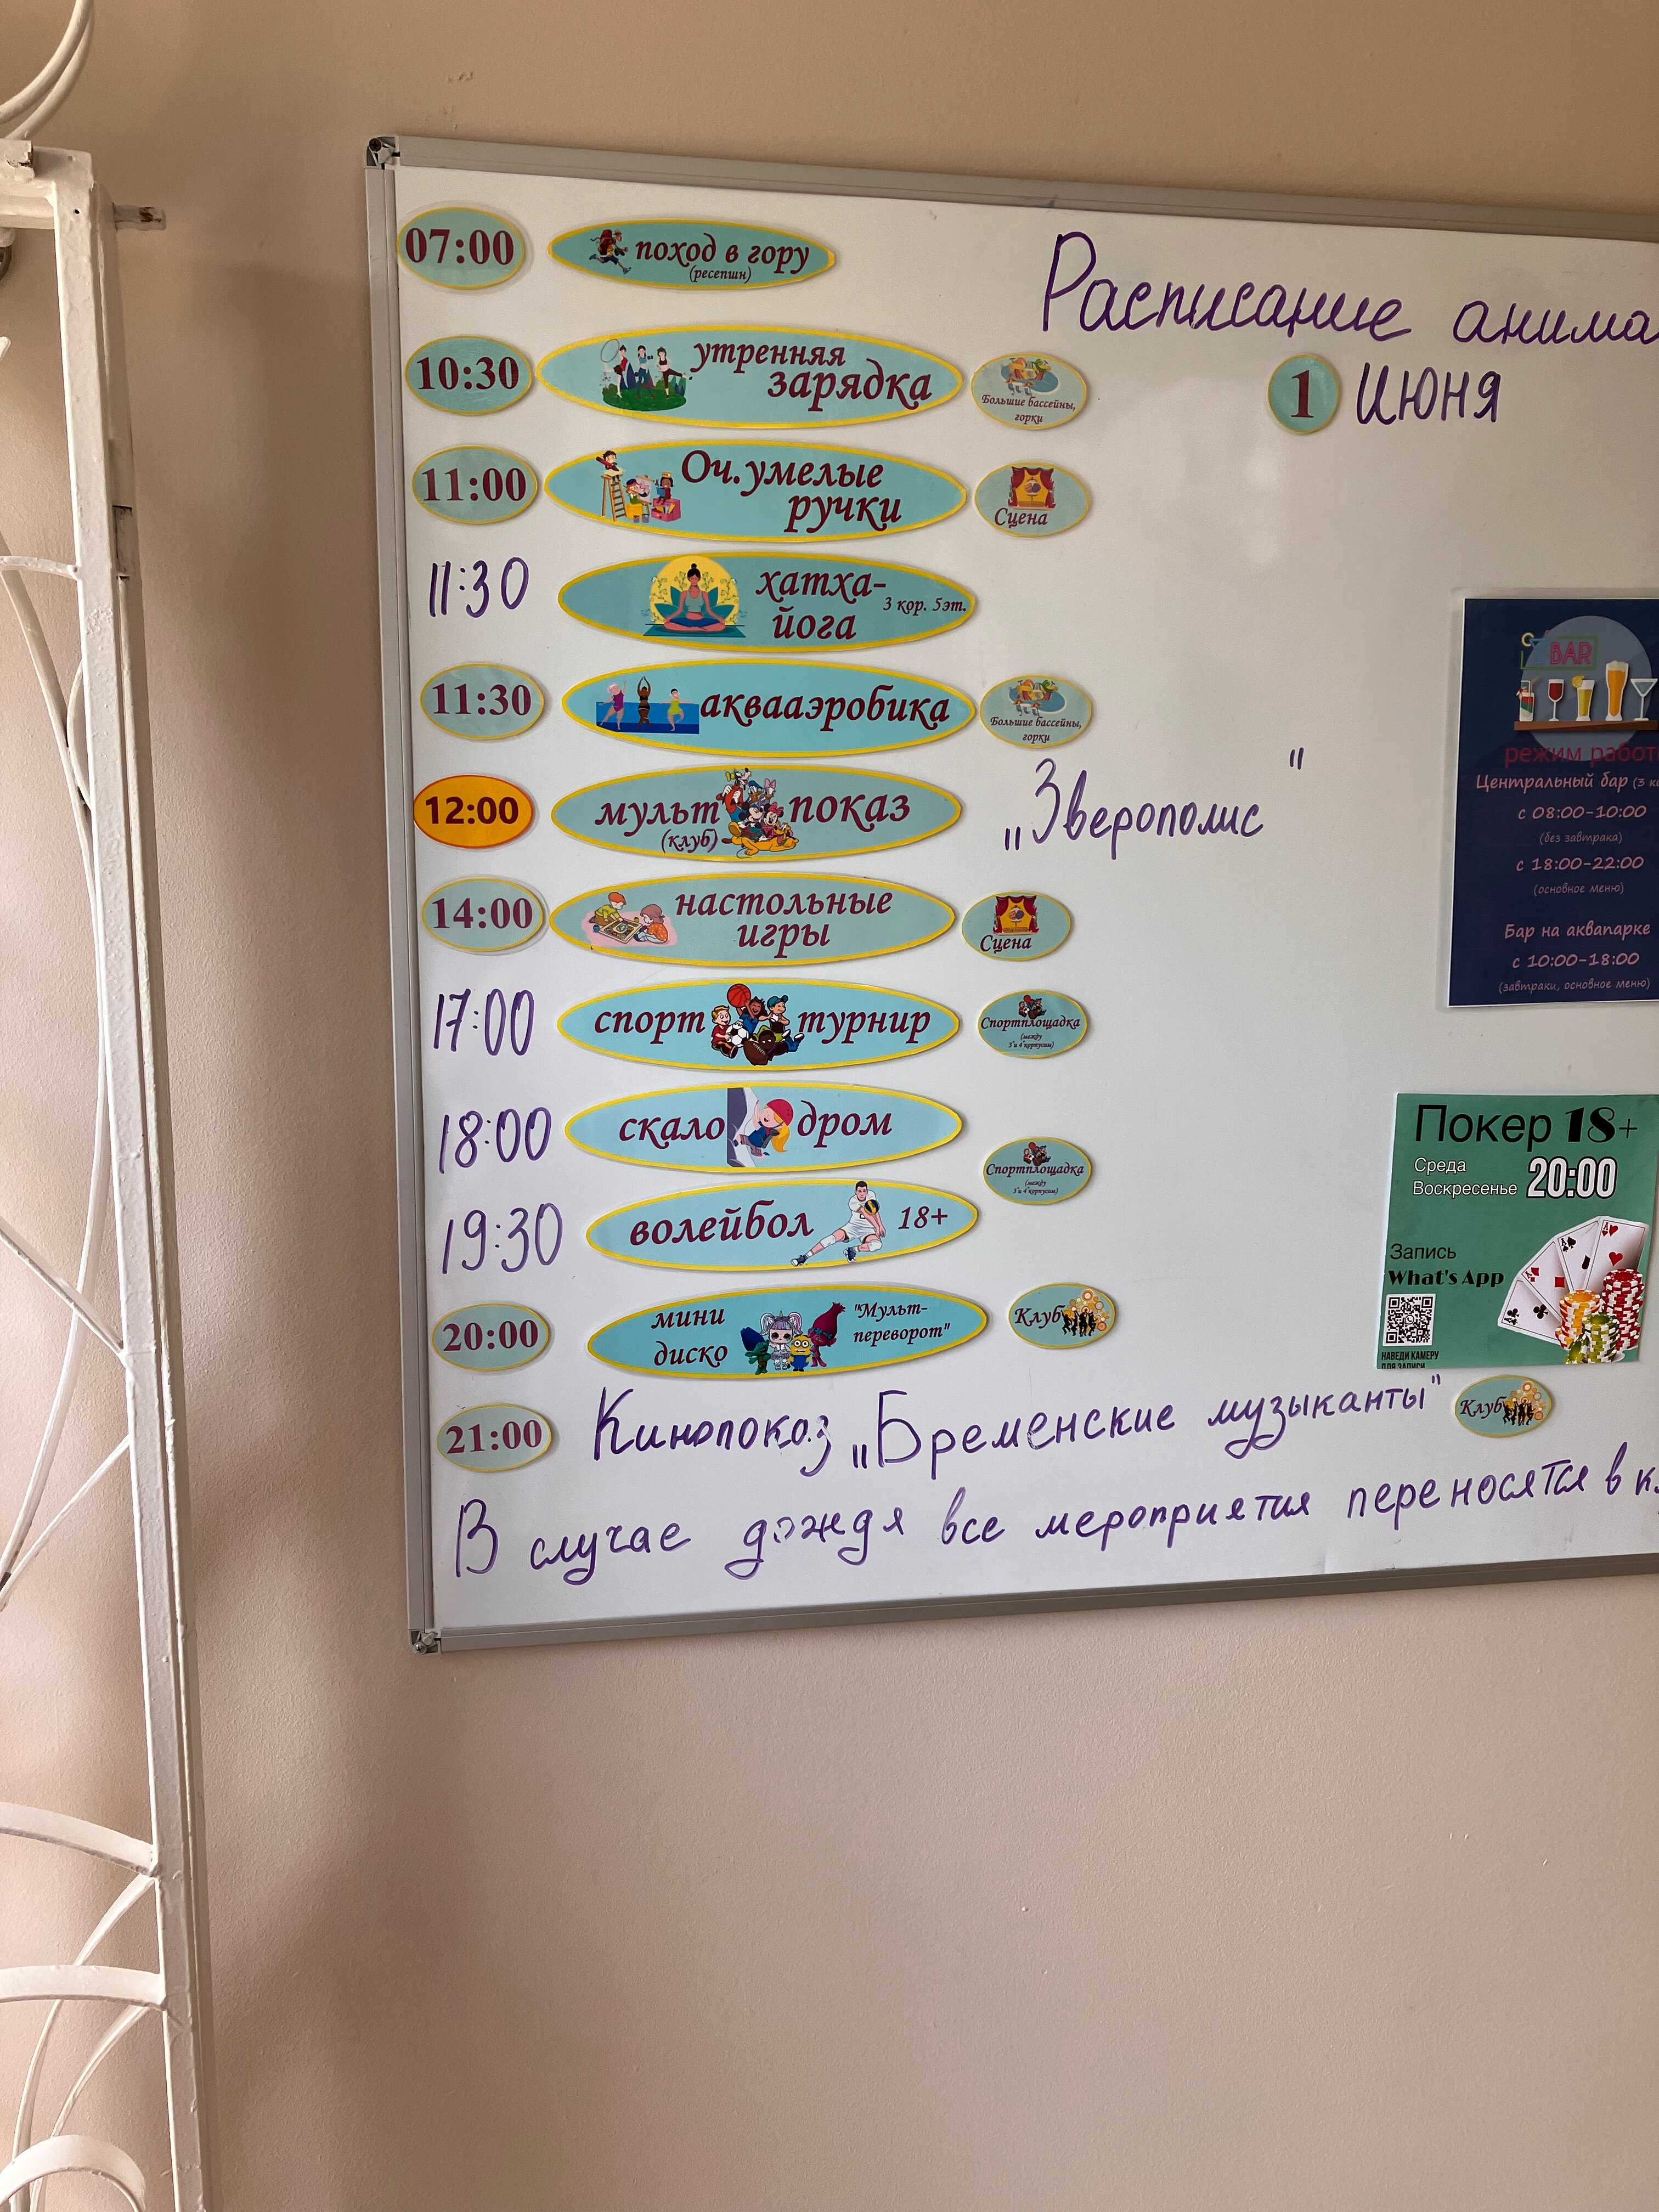 Расписание анима
1 июня
07:00 поход в гору
(ресепшн)
10:30 утренняя
зарядка
Большие бассейны,
горки
11:00 Оч.умелые
ручки
Сцена
11:30 хатха-
йога
3 кор. 5эт.
11:30 аквааэробика
Большие бассейны,
горки
12:00 мульт показ
(клуб)
„Зверополис"
14:00 настольные
игры
Сцена
17:00 спорт турнир
Спортплощадка
(между
3 и 4 корпусим)
18:00 скало дром
Спортплощадка
(между
3 и 4 корпусим)
19:30 волейбол 18+
20:00 мини
диско
"Мульт-
переворот"
Клуб
21:00 Кинопоказ „Бременские музыканты" Клуб
В случае дождя все мероприятия переносятся в кл
BAR
режим работ
Центральный бар (3 ко
с 08:00-10:00
(без завтрака)
с 18:00-22:00
(основное меню)
Бар на аквапарке
с 10:00-18:00
(завтраки, основное меню)
Покер 18+
Среда
Воскресенье 20:00
Запись
What's App
НАВЕДИ КАМЕРУ
ДЛЯ ЗАПИСИ